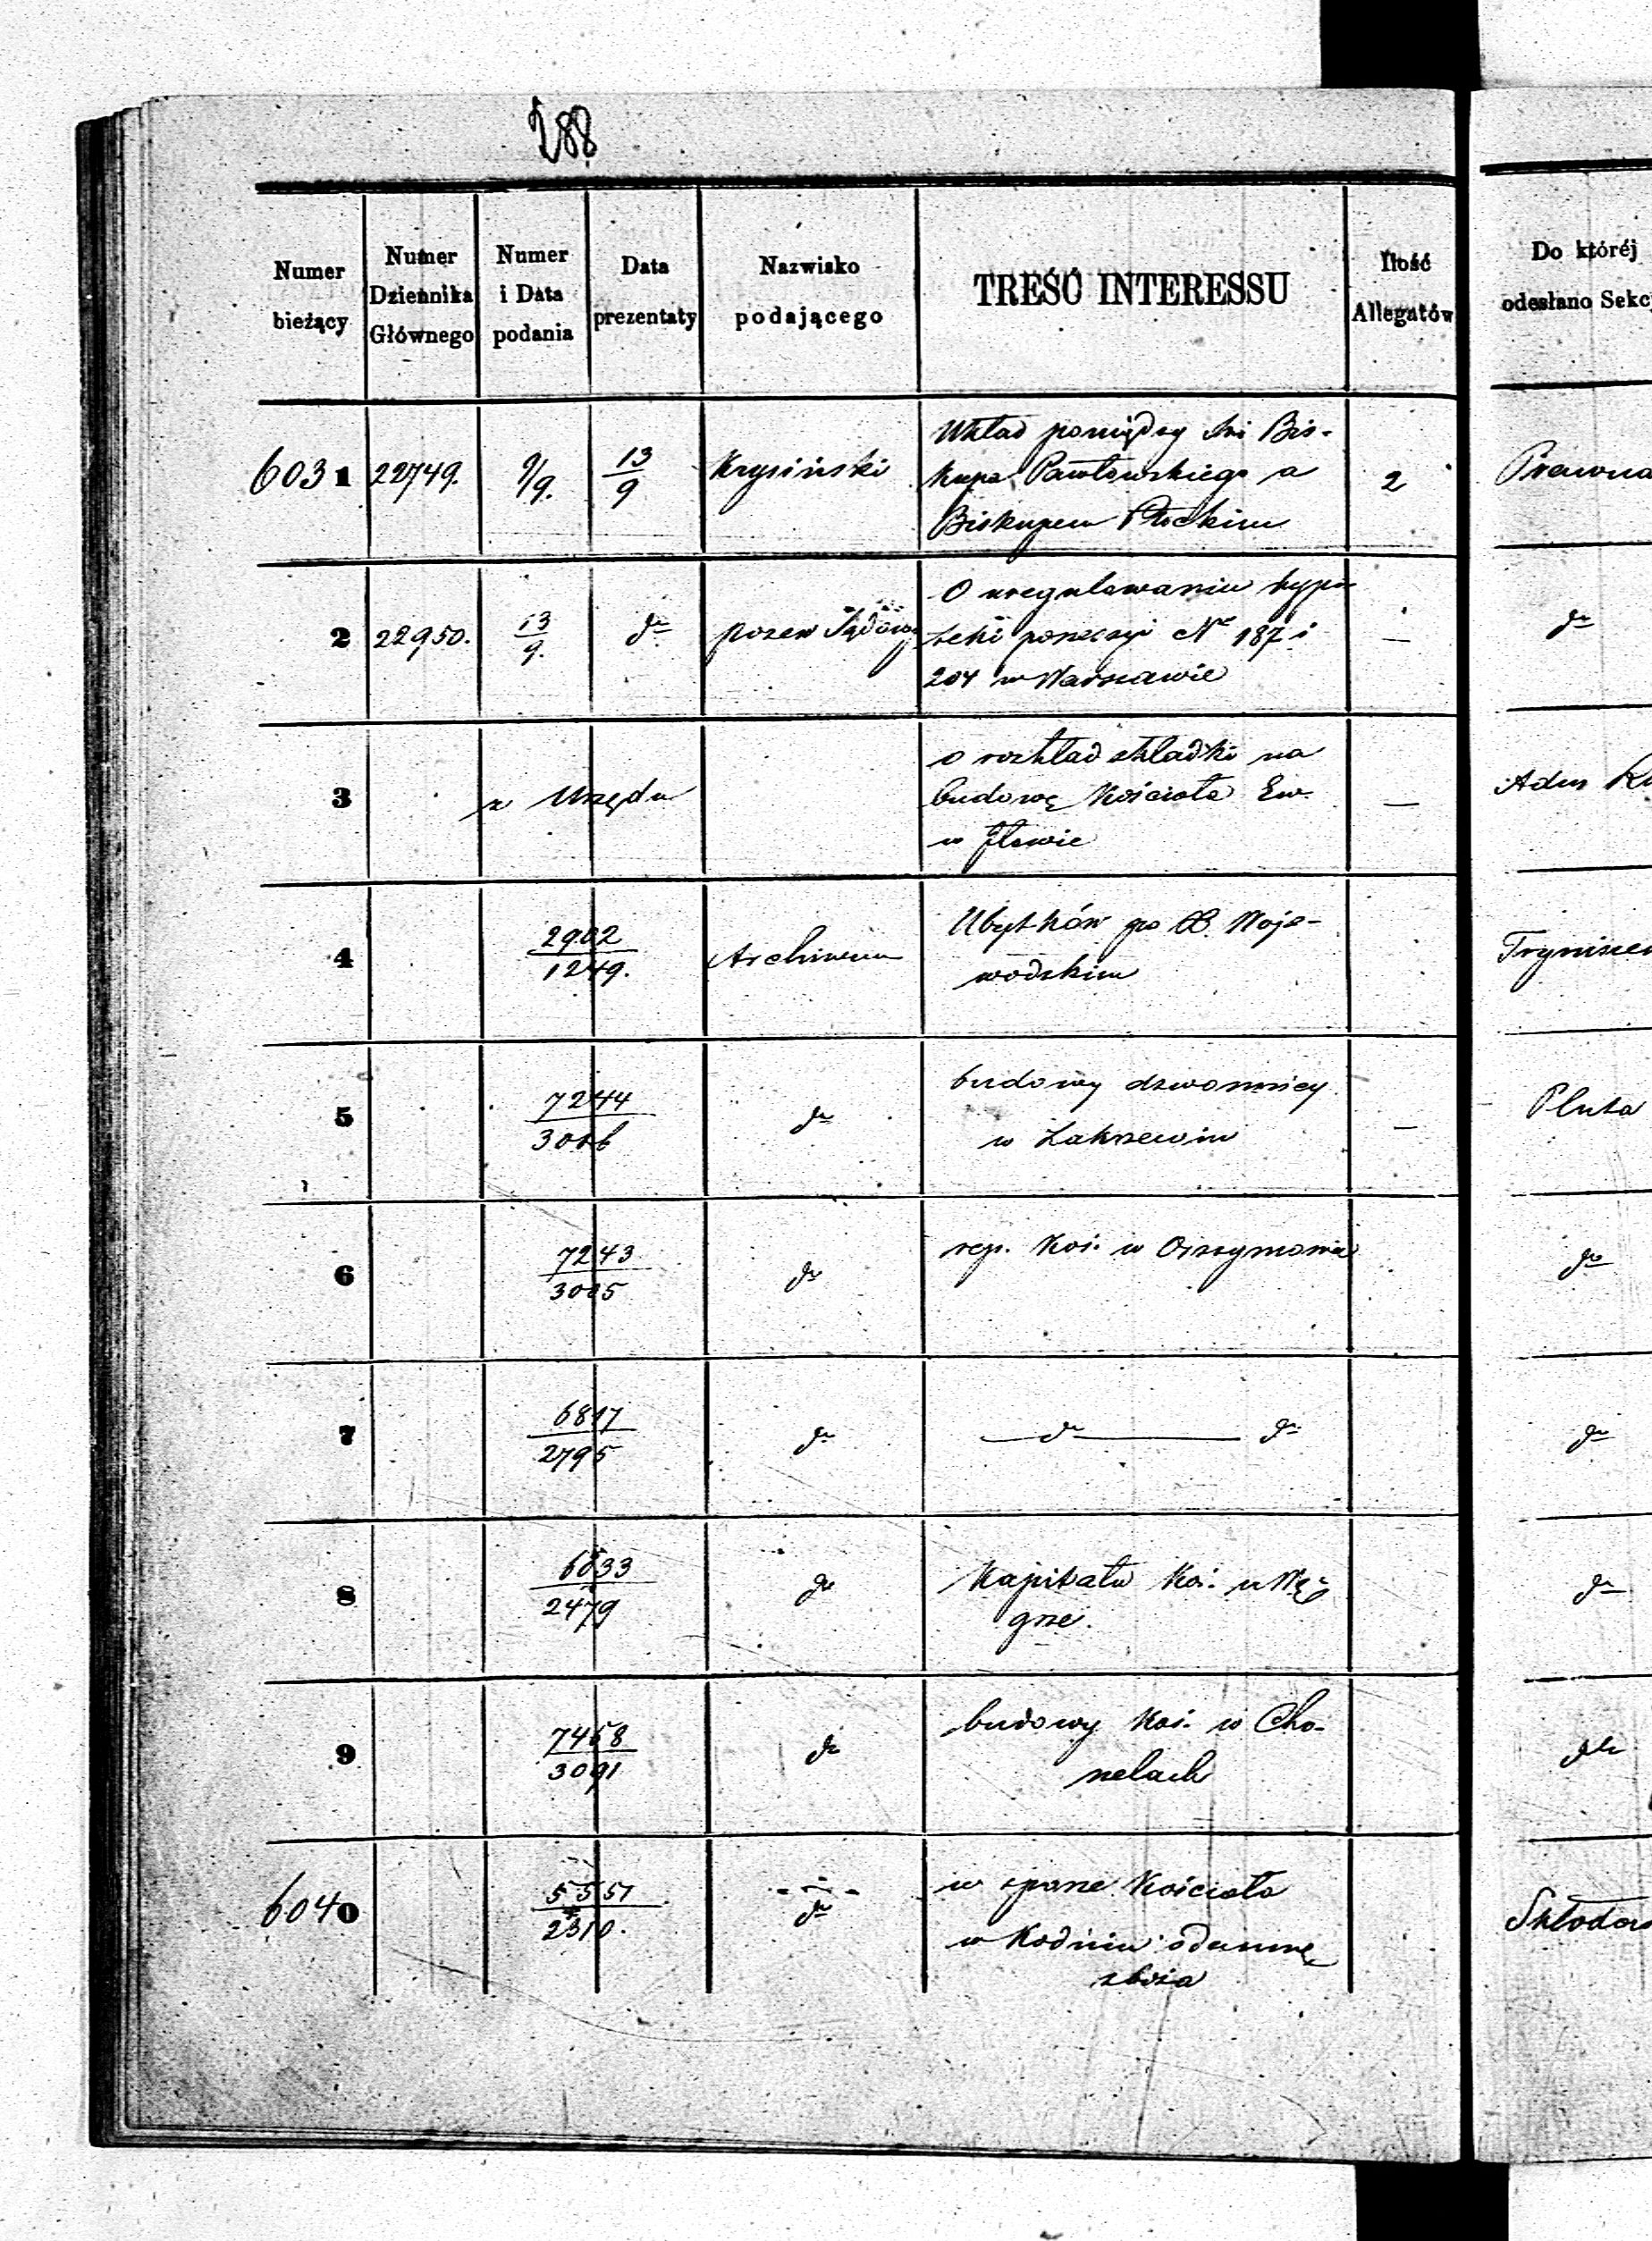 288
Numer bieżący
Numer Dziennika Głównego
Numer i Data podania
Data prezentaty
Nazwisko podającego
TREŚĆ INTERESSU
Ilość Allegatów
Do któréj odesłano Sekc
6031 22749. 9/9. 13/9 Krysiński
Układ pomiędzy
Bis-
kupa Pawłowskiego a
Biskupem Płockim
2
Prawna
2 22950. 13/9. do pozew Sądowy
O uregulowaniu hypo
teki posessyi No 187 i
204 w Warszawie
—
do
3 z Urzędu
o rozkład składki na
budowę Kościoła Ew.
w Iłowie
—
Adm
4 2902/1249. Archiwum
Ubytków po
Woje-
wodzkim
5 7244/3006 do
budowy dzwonnicy
w Zakrzewiu
—
Pluta
6 7243/3005 do
rep. Koś. w
do
7 6817/2795 do
do do
do
8 6033/2479 do
Kapitału Koś. w Wę-
grze.
do
9 7458/3091 do
budowy Koś. w Cho-
rzelach
do
6040 5551/2310. do
w sporze Kościoła
w Kodniu o daninę
zboża
Skłodow